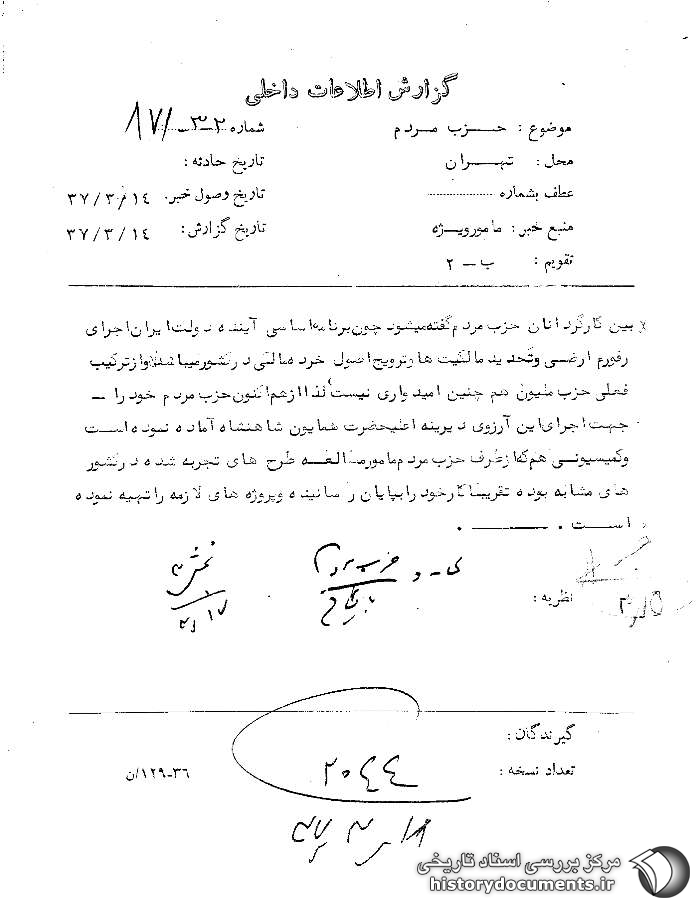 گزارش اطلاعات داخلی
موضوع : حزب مردم
شماره ۲-۳-
محل : تهران
تاریخ حادثه :
عطف بشماره ....................
تاریخ وصول خبر. ۳۷/۳/۱٤
منبع خبر : مامورویژه
تاریخ گزارش : ۳۷/۳/۱٤
تقویم : ب - ۲
بین کارگردانان حزب مردم گفته میشود چون برنامه اساسی آینده دولت ایران اجرای
رفورم ارضی وتحدید مالکیت ها وترویج اصول خرده مالکی در کشور میباشد واز ترکیب
فعلی حزب ملیون هم چنین امیدواری نیست لذا از هم اکنون حزب مردم خود را -
جهت اجرای این آرزوی دیرینه اعلیحضرت همایون شاهنشاه آماده نموده است
وکمیسیونی هم که از طرف حزب مردم مامور مطالعه طرح های تجربه شده در کشور
های مشابه بوده تقریبا کار خود را بپایان رسانیده وپروژه های لازمه را تهیه نموده
است . ــــــــ .
حزب مردم
نظریه :
گیرندگان :
تعداد نسخه :
۲۰٤٤
۳۶-۱۲۹/ن
مرکز بررسی اسناد تاریخی
historydocuments.ir